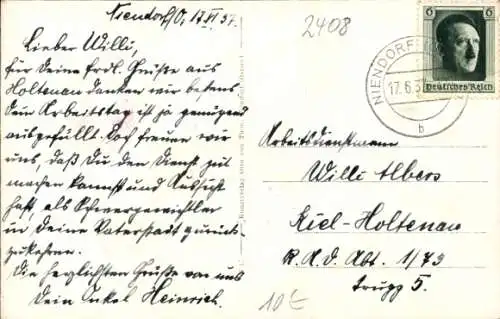 Niendorf/O, 17.VI.37.
Lieber Willi,
für Deine frdl. Grüße aus
Holtenau danken wir bestens
Dein Arbeitstag ist ja genügend
ausgefüllt. Doch freuen wir
uns, daß Du den Dienst gut
machen kannst und Aussicht
hast, als Schwergewichtler
in Deine Vaterstadt zurück-
zukehren.
Die herzlichsten Grüße von uns
Dein Onkel Heinrich.
2408
NIENDORF
17.6.3
b
6
Deutsches Reich
Arbeitsdienstmann
Willi Albers
Kiel-Holtenau
R.A.D. Abt. 1/73
Trupp 5.
10€